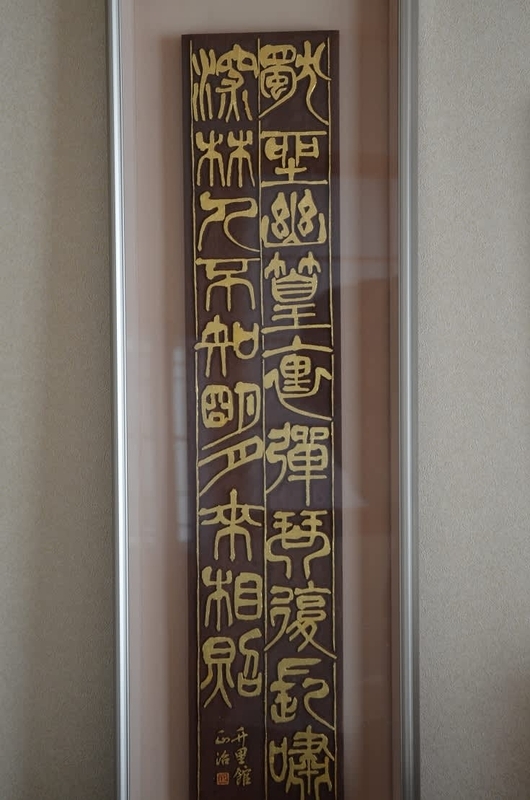 獨坐幽篁裏彈琴復長嘯
深林人不知明月来相照
里館
正治